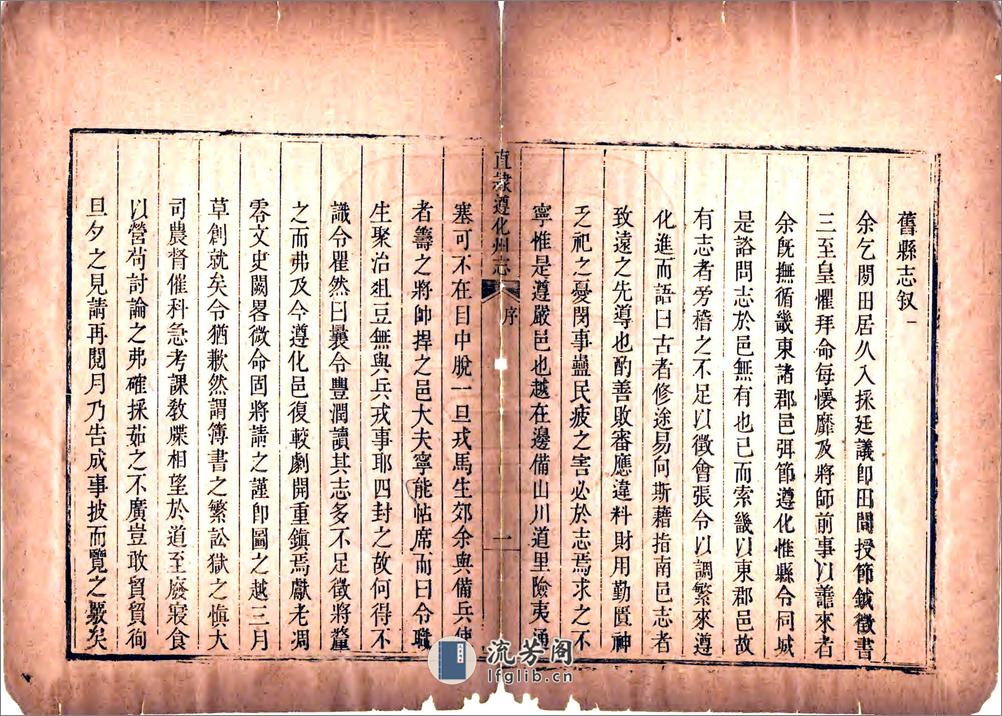 舊縣志叙一
余乞閒田居久入採廷議卽田間授節鉞徵書
三至皇懼拜命每懷靡及將師前事以譫來者
余旣撫循畿東諸郡邑弭節遵化惟縣令同城
是諮問志於邑無有也已而索畿以東郡邑故
有志者旁稽之不足以徵會張令以調繁來遵
化進而語曰古者修途易向斯藉指南邑志者
致遠之先導也酌善敗審應違料財用勤匱神
乏祀之憂閔事蠱民疲之害必於志焉求之不
寧惟是遵嚴邑也越在邊備山川道里險夷通
直隸遵化州志
序
一
塞可不在目中脫一旦戎馬生郊余與備兵使
者籌之將帥捍之邑大夫寧能帖席而曰令職
生聚治俎豆無與兵戎事耶四封之故何得不
識令瞿然曰曩令豐潤讀其志多不足徵將釐
之而弗及今遵化邑復較劇開重鎮焉獻老凋
零文史闕畧微命固將請之謹卽圖之越三月
草創就矣令猶歉然謂簿書之繁訟獄之慎大
司農督催科急考課敎牒相望於道至廢寢食
以營苟討論之弗確採茹之不廣豈敢貿貿徇
旦夕之見請再閱月乃告成事披而覽之覈矣
流芳阁
lfglib.cn